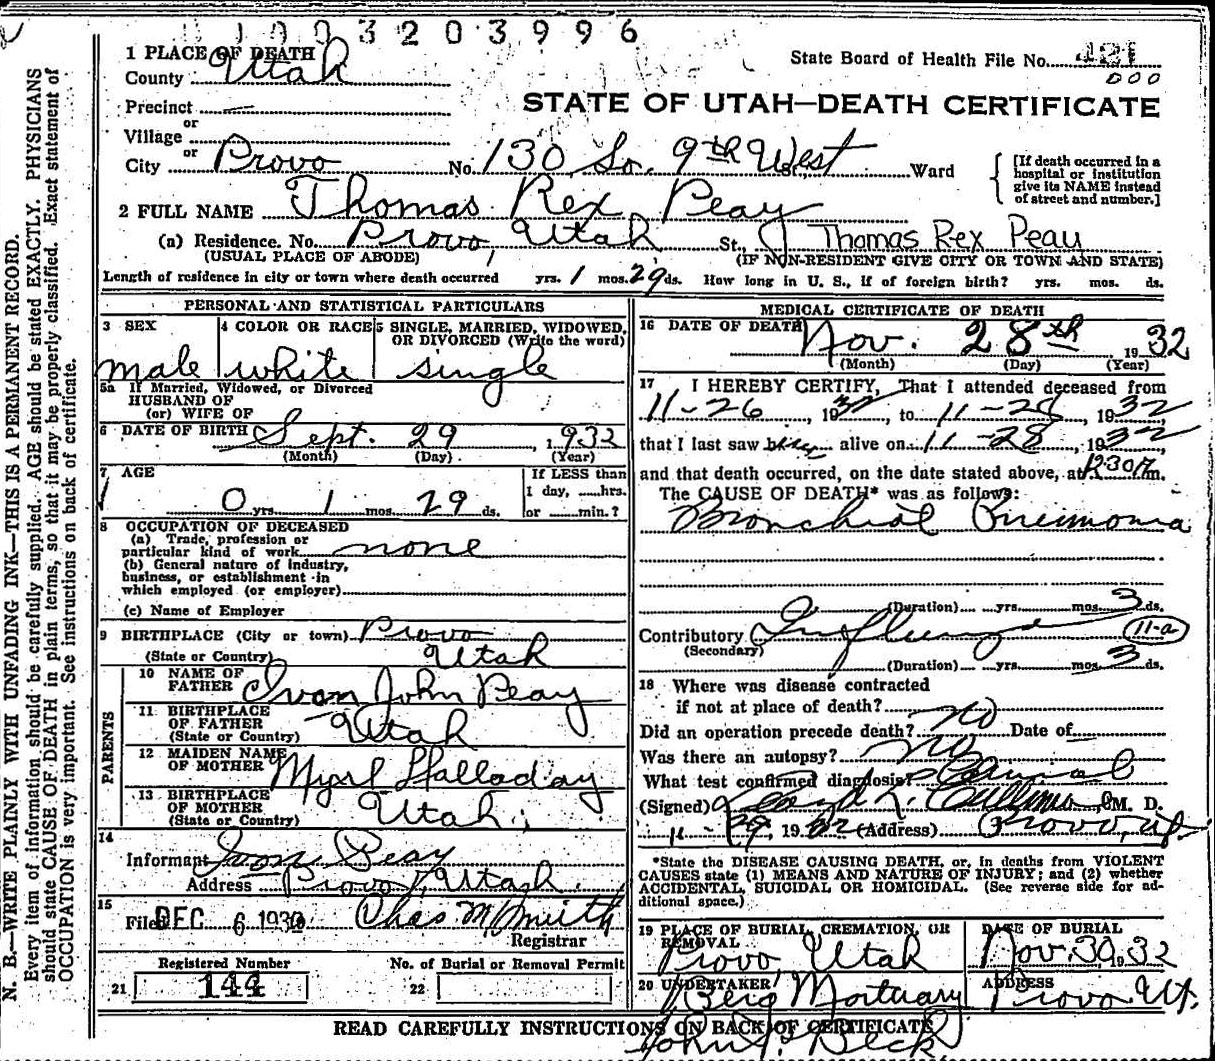 1003203996
1 PLACE OF DEATH
State Board of Health File No. 421
County Utah
000
Precinct —
STATE OF UTAH—DEATH CERTIFICATE
or
Village
or
City Provo No. 130 So. 9th West St., Ward
[If death occurred in a hospital or institution give its NAME instead of street and number.]
2 FULL NAME Thomas Rex Peay
(a) Residence. No. Provo, Utah St., Thomas Rex Peay
(USUAL PLACE OF ABODE) (IF NON-RESIDENT GIVE CITY OR TOWN AND STATE)
Length of residence in city or town where death occurred yrs. 1 mos. 29 ds. How long in U. S., if of foreign birth? yrs. mos. ds.
PERSONAL AND STATISTICAL PARTICULARS
3 SEX
male
4 COLOR OR RACE
white
5 SINGLE, MARRIED, WIDOWED, OR DIVORCED (Write the word)
single
5a If Married, Widowed, or Divorced
HUSBAND OF
(or) WIFE OF
6 DATE OF BIRTH Sept. 29 1932
(Month) (Day) (Year)
7 AGE
0 yrs. 1 mos. 29 ds.
If LESS than
1 day, ......hrs.
or ......min.?
8 OCCUPATION OF DECEASED
(a) Trade, profession or
particular kind of work none
(b) General nature of industry,
business, or establishment in
which employed (or employer)
(c) Name of Employer
9 BIRTHPLACE (City or town) Provo
(State or Country) Utah
PARENTS
10 NAME OF
FATHER Ivan John Peay
11 BIRTHPLACE
OF FATHER
(State or Country) Utah
12 MAIDEN NAME
OF MOTHER Myrl Halladay
13 BIRTHPLACE
OF MOTHER
(State or Country) Utah
14
Informant Ivan Peay
Address Provo, Utah.
15
Filed DEC 6 1932 Chas M Smith
Registrar
Registered Number No. of Burial or Removal Permit
21 144 22
MEDICAL CERTIFICATE OF DEATH
16 DATE OF DEATH Nov. 28th 1932
(Month) (Day) (Year)
17 I HEREBY CERTIFY, That I attended deceased from
11-26, 1932, to 11-28, 1932
that I last saw him alive on 11-28, 1932
and that death occurred, on the date stated above, at m.
The CAUSE OF DEATH* was as follows:
Bronchial Pneumonia
(Duration) yrs. mos. 3 ds.
Contributory Influenza 11-a
(Secondary)
(Duration) yrs. mos. 3 ds.
18 Where was disease contracted
if not at place of death?
Did an operation precede death? no Date of
Was there an autopsy? no
What test confirmed diagnosis? Clinical
(Signed) Lloyd L. Cullimore M. D.
11-29, 1932 (Address) Provo, Ut.
*State the DISEASE CAUSING DEATH, or, in deaths from VIOLENT
CAUSES state (1) MEANS AND NATURE OF INJURY; and (2) whether
ACCIDENTAL, SUICIDAL OR HOMICIDAL. (See reverse side for ad-
ditional space.)
19 PLACE OF BURIAL, CREMATION, OR
REMOVAL
Provo, Utah
DATE OF BURIAL
Nov. 30, 1932
20 UNDERTAKER
Berg Mortuary
ADDRESS
Provo Ut.
READ CAREFULLY INSTRUCTIONS ON BACK OF CERTIFICATE
Beck
N. B.—WRITE PLAINLY WITH UNFADING INK—THIS IS A PERMANENT RECORD.
Every item of information should be carefully supplied. AGE should be stated EXACTLY. PHYSICIANS
should state CAUSE OF DEATH in plain terms, so that it may be properly classified. Exact statement of
OCCUPATION is very important. See instructions on back of certificate.